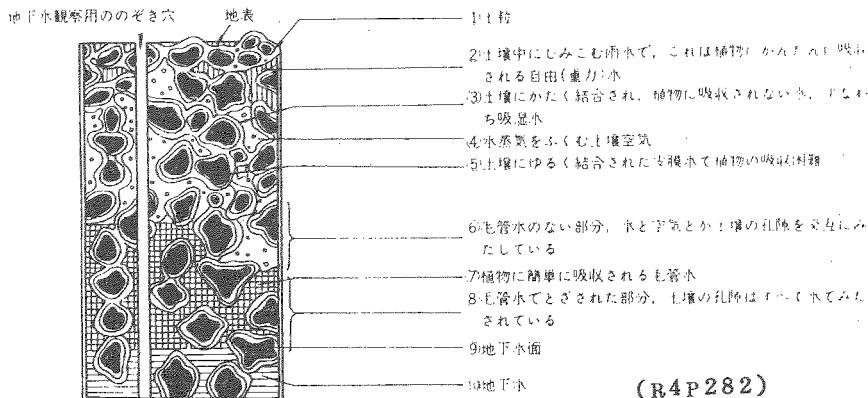 地下水観察用ののぞき穴
地表
1)土粒
2)土壌中にしみこむ雨水で，これは植物にかんたんに吸収
される自由(重力)水
3)土壌にかたく結合され，植物に吸収されない水，すなわ
ち吸湿水
4)水蒸気をふくむ土壌空気
5)土壌にゆるく結合された皮膜水で植物の吸収困難
6)毛管水のない部分，水と空気とが土壌の孔隙を交互にみ
たしている
7)植物に簡単に吸収される毛管水
8)毛管水でとざされた部分，土壌の孔隙はすべて水でみた
されている
9)地下水面
10)地下水
(R4P282)